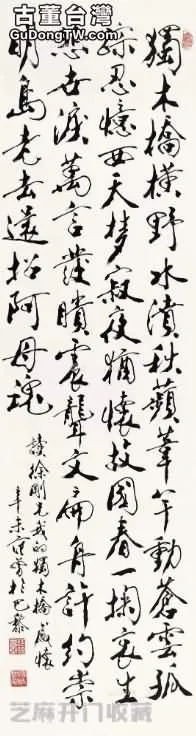 古董台灣
GuDongTW.com
獨木橋橫野水濆秋蘋葦芊動蒼雲孤
踪忍憶西天梦寂夜猶懷故國春一掬哀生
悲世淚萬言發聵震聾文扁舟許約崇
明島老去還招阿母魂
讀徐剛兄我的獨木橋感懷
辛未范曾於巴黎
芝麻开门收藏